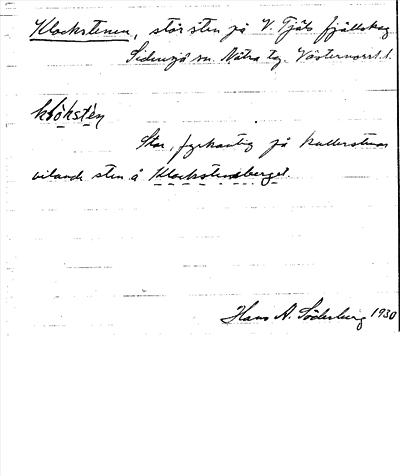 Klockstenen, stor sten på V. Fjäls fjällskog
Sidensjö sn. Nätra tg. Västernorrl. l.
klòkstèn
Stor, fyrkantig på kullerstenar
vilande sten å Klockstensberget.
Hans A. Söderberg 1930